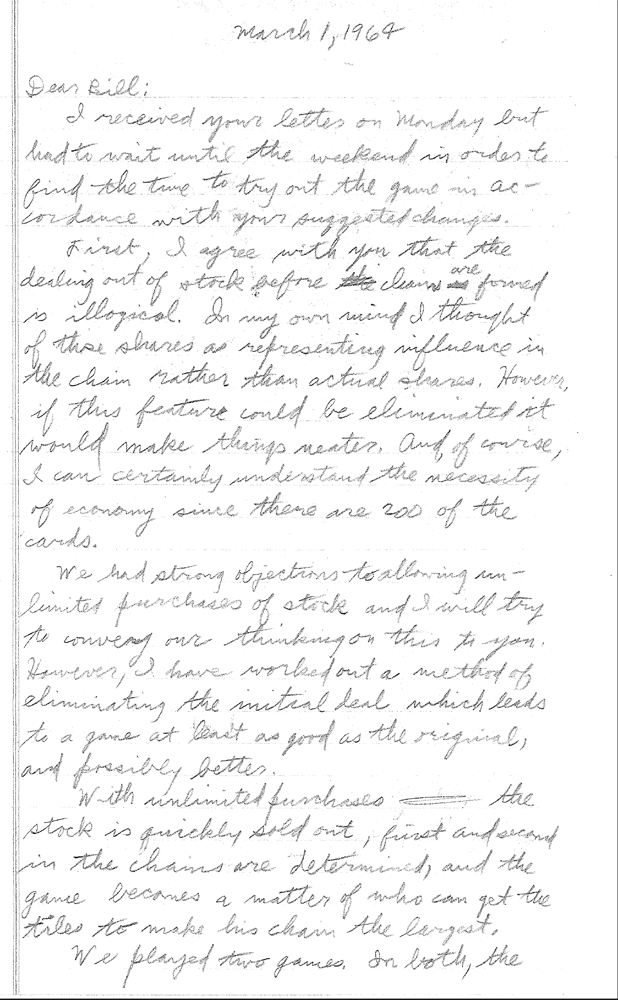 March 1, 1964
Dear Bill:
I received your letter on Monday but
had to wait until the weekend in order to
find the time to try out the game in ac-
cordance with your suggested changes.
First, I agree with you that the
dealing out of stock before chains are formed
is illogical. In my own mind I thought
of these shares as representing influence in
the chain rather than actual shares. However,
if this feature could be eliminated it
would make things neater. And, of course,
I can certainly understand the necessity
of economy since there are 200 of the
cards.
We had strong objections to allowing un-
limited purchases of stock and I will try
to convey our thinking on this to you.
However, I have worked out a method of
eliminating the initial deal which leads
to a game at least as good as the original,
and possibly better.
With unlimited purchases the
stock is quickly sold out, first and second
in the chains are determined, and the
game becomes a matter of who can get the
tiles to make his chain the largest.
We played two games. In both, the